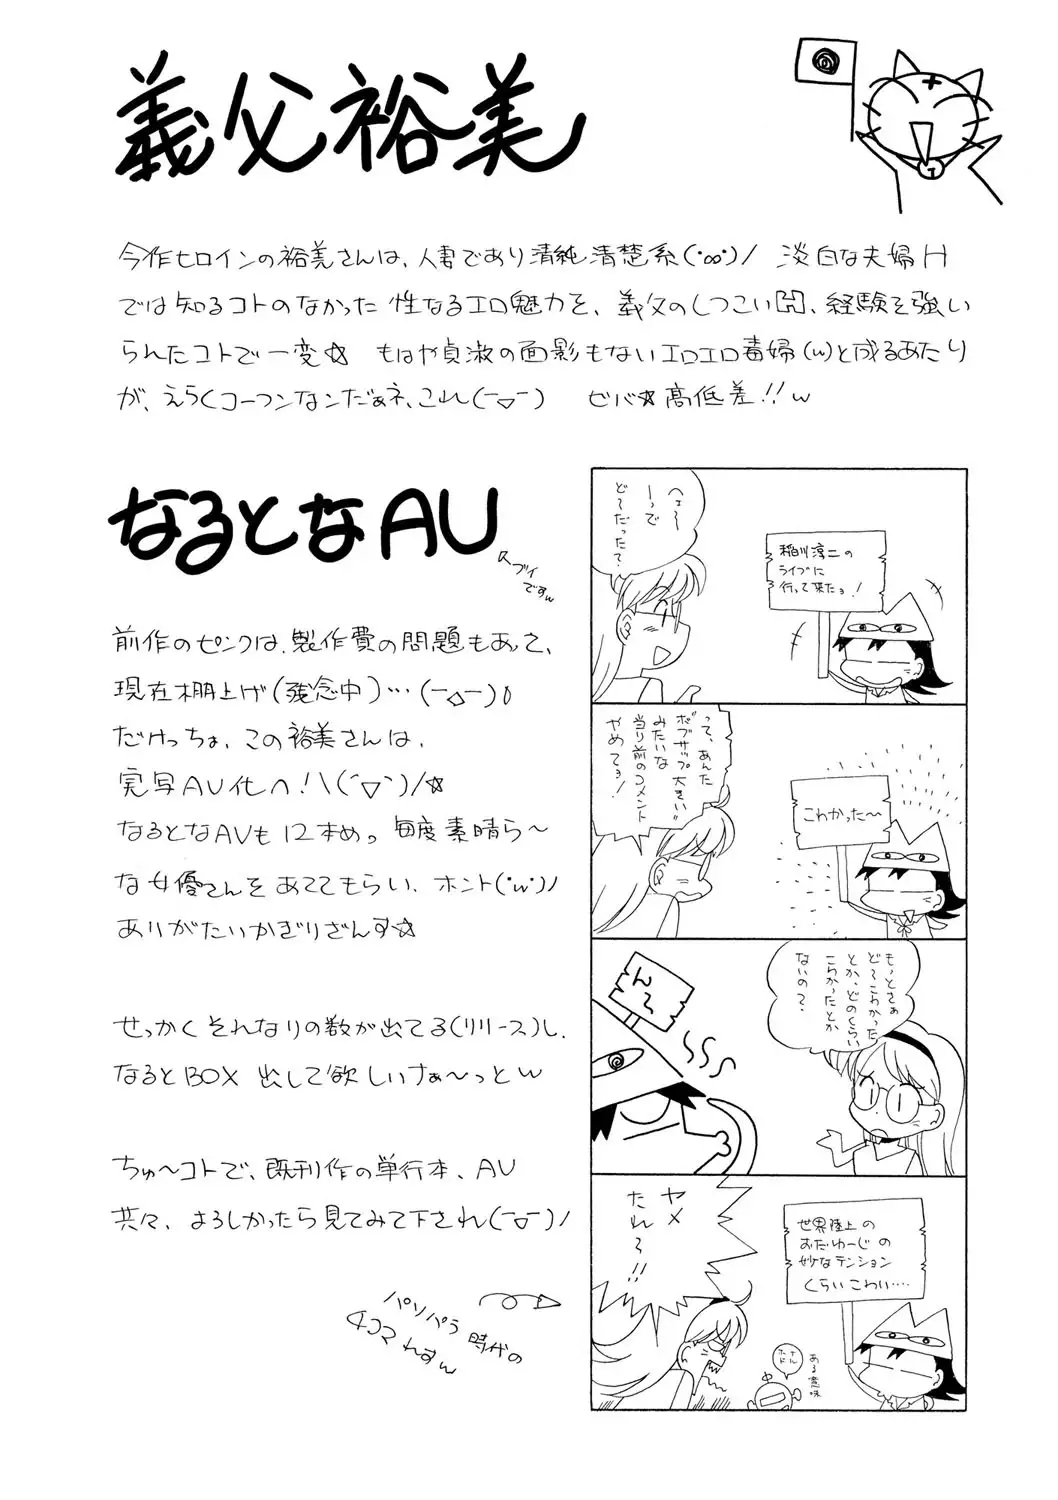 義父裕美
今作ヒロインの裕美さんは、人妻であり清純清楚系(･∞･)ﾉ 淡白な夫婦H
では知るコトのなかった 性なるエロ魅力を、義父のしつこい調、経験を強い
られたコトで一変☆ もはや貞淑の面影もないエロエロ毒婦(w)と成るあたり
が、えらくコーフンなンだぁネ、これ(ー▽ー) ビバ☆高低差!!w
なるとなAU
ですw
前作のピンクは、製作費の問題もあって、
現在棚上げ(残念中)…(ー△ー)0
だけっちょ、この裕美さんは、
実写AV化へ!\(´▽`)/☆
なるとなAVも12本め。毎度素晴ら〜
な女優さんをあててもらい、ホント(･w･)ﾉ
ありがたいかぎりざんす☆
せっかくそれなりの数が出てる(リリース)し、
なるとBOX 出して欲しいけぁ〜っとw
ちゅ〜コトで、既刊作の単行本、AU
共々、よろしかったら見てみて下され(ー▽ー)ﾉ
パソパラ時代の
4コマっすw
へぇ〜
ーって
ど〜だった？
稲川淳二の
ライブに
行って来たョ!
って、あんた
ボブサップ大きい
みたいな
当り前のコメント
やめてョ!
こわかった〜
も〜とさぁ
ど〜こわかった
とか、どのくらい
こわかったとか
ないの？
ん〜
ヤメ
たれ〜!!
世界陸上の
おだゆーじの
妙なテンション
くらいこわい‥‥
ある意味
ナル
ホド